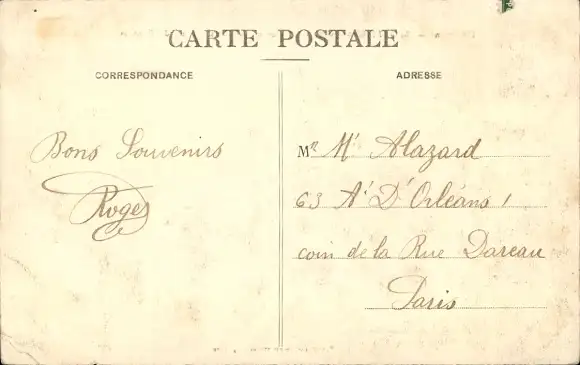 CARTE POSTALE
CORRESPONDANCE
ADRESSE
Bons Souvenirs
Roger
M
Mr Alazard
63 Ar D'Orléans,
coin de la Rue Dareau
Paris